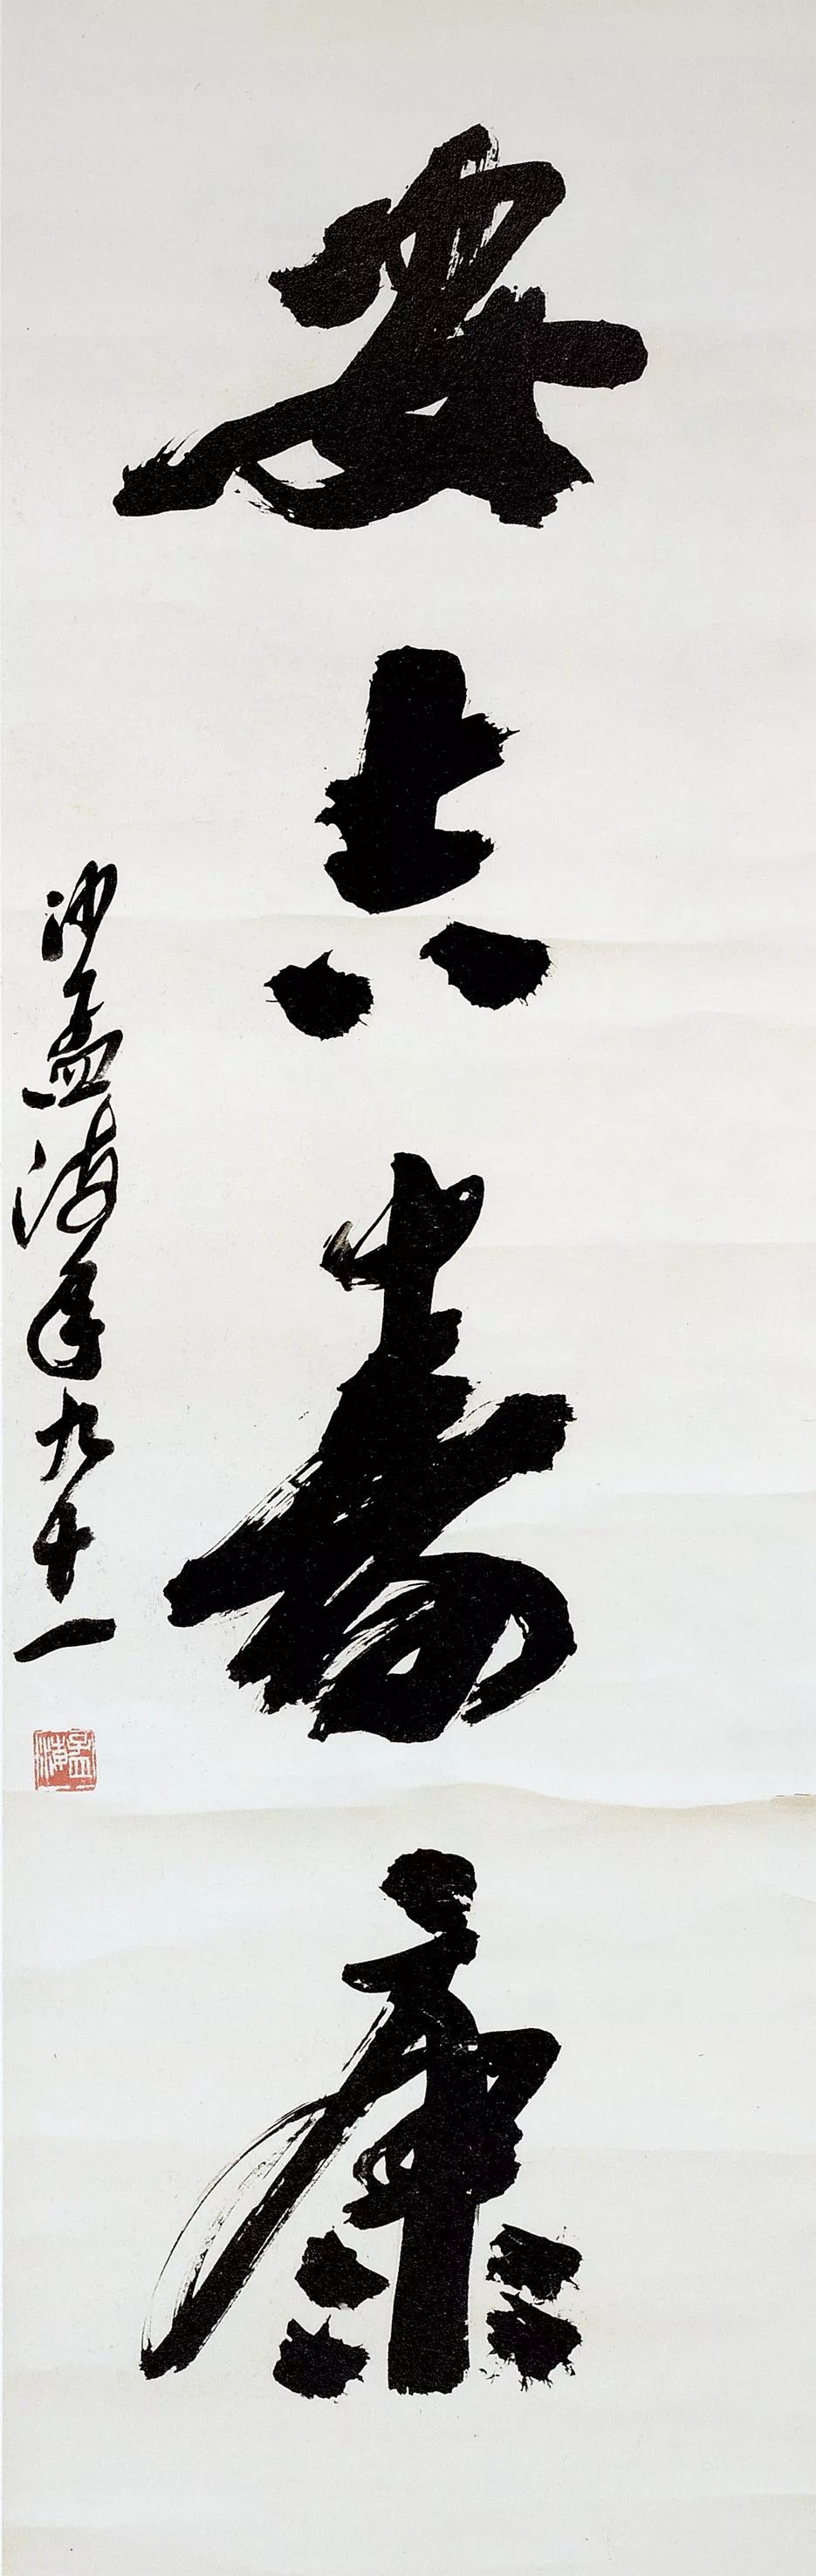 安壽康
沙孟海年九十一
孟海